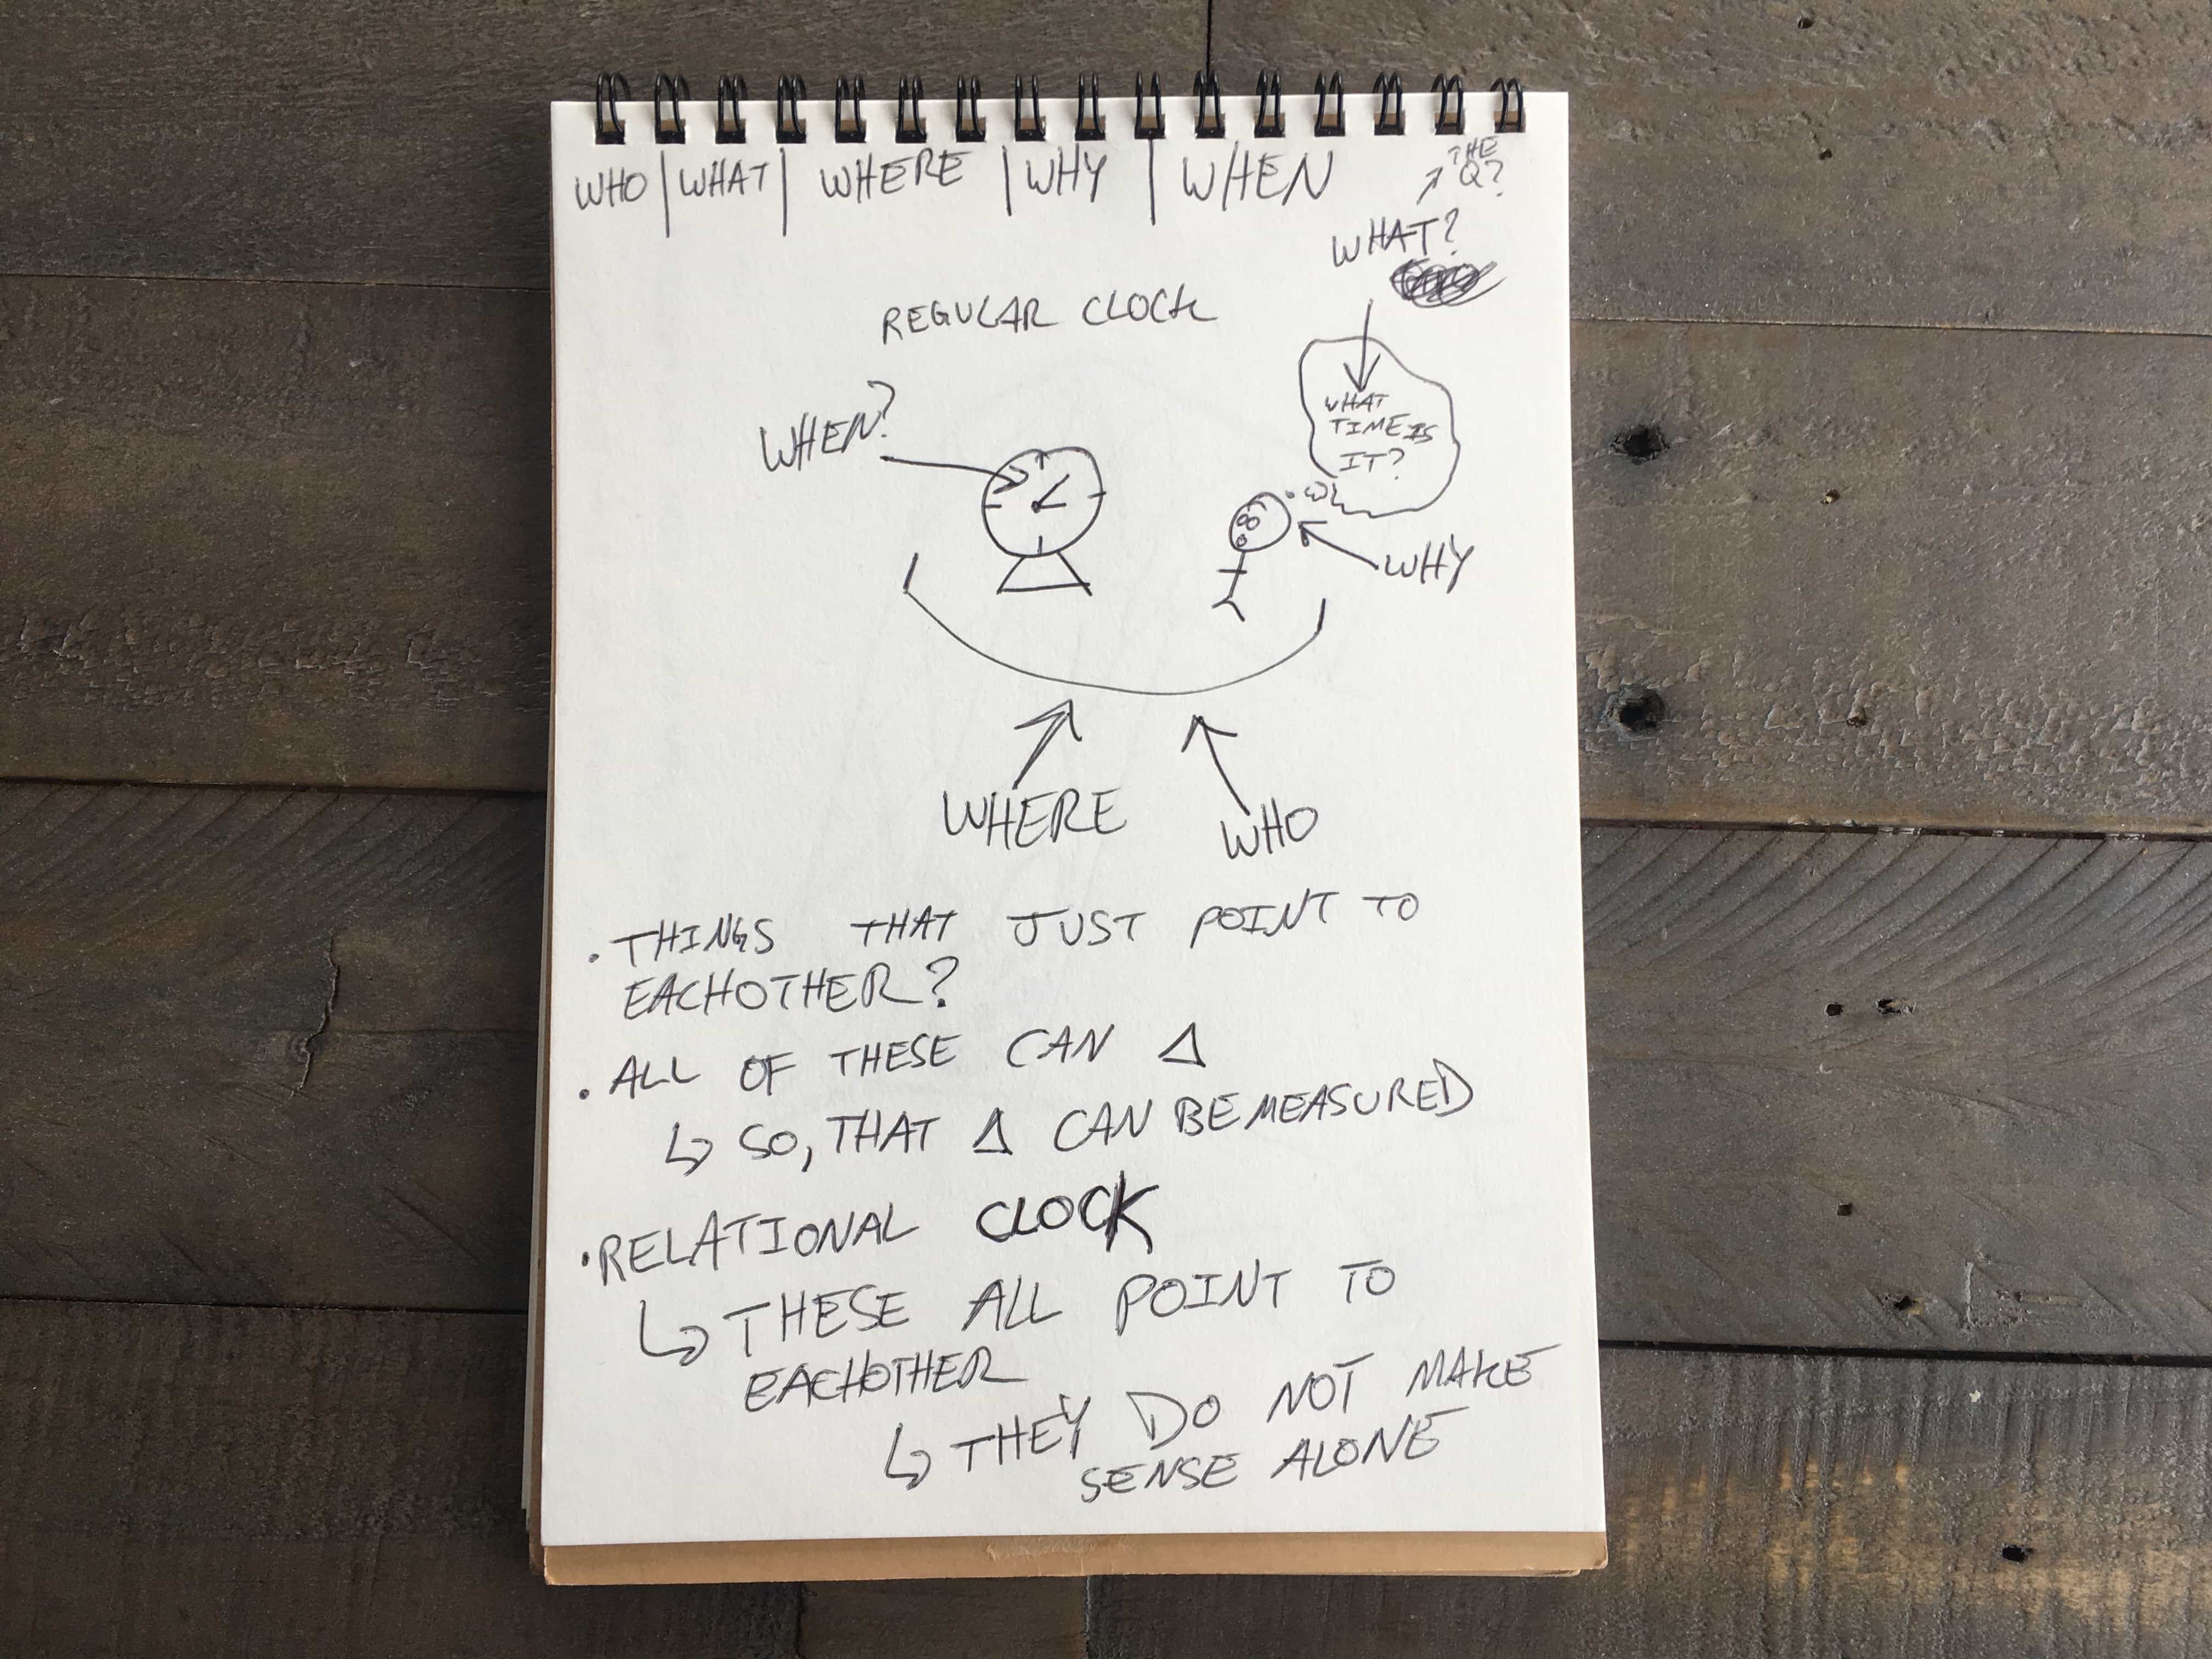 WHO | WHAT | WHERE | WHY | WHEN
THE
Q?
WHAT?
REGULAR CLOCK
WHEN?
WHAT
TIME IS
IT?
WHY
WHERE
WHO
· THINGS THAT JUST POINT TO
EACHOTHER?
· ALL OF THESE CAN Δ
↳ SO, THAT Δ CAN BE MEASURED
· RELATIONAL CLOCK
↳ THESE ALL POINT TO
EACHOTHER
↳ THEY DO NOT MAKE
SENSE ALONE